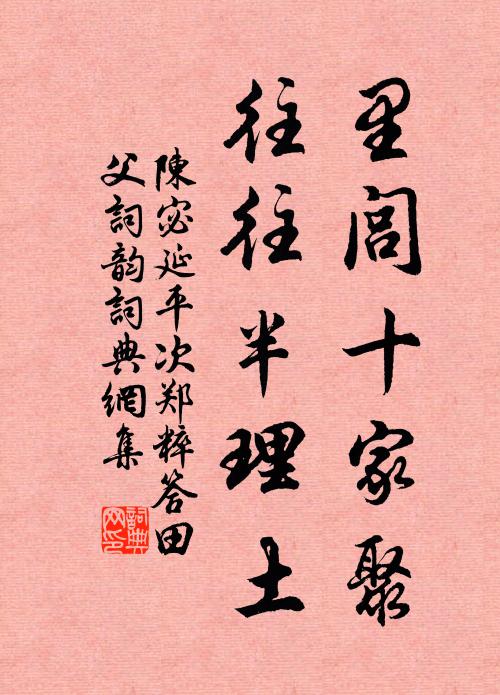 里闾十家聚
往往半理土
陳宓延平次郑粹答田
父詞韵詞典網集
詞典网印